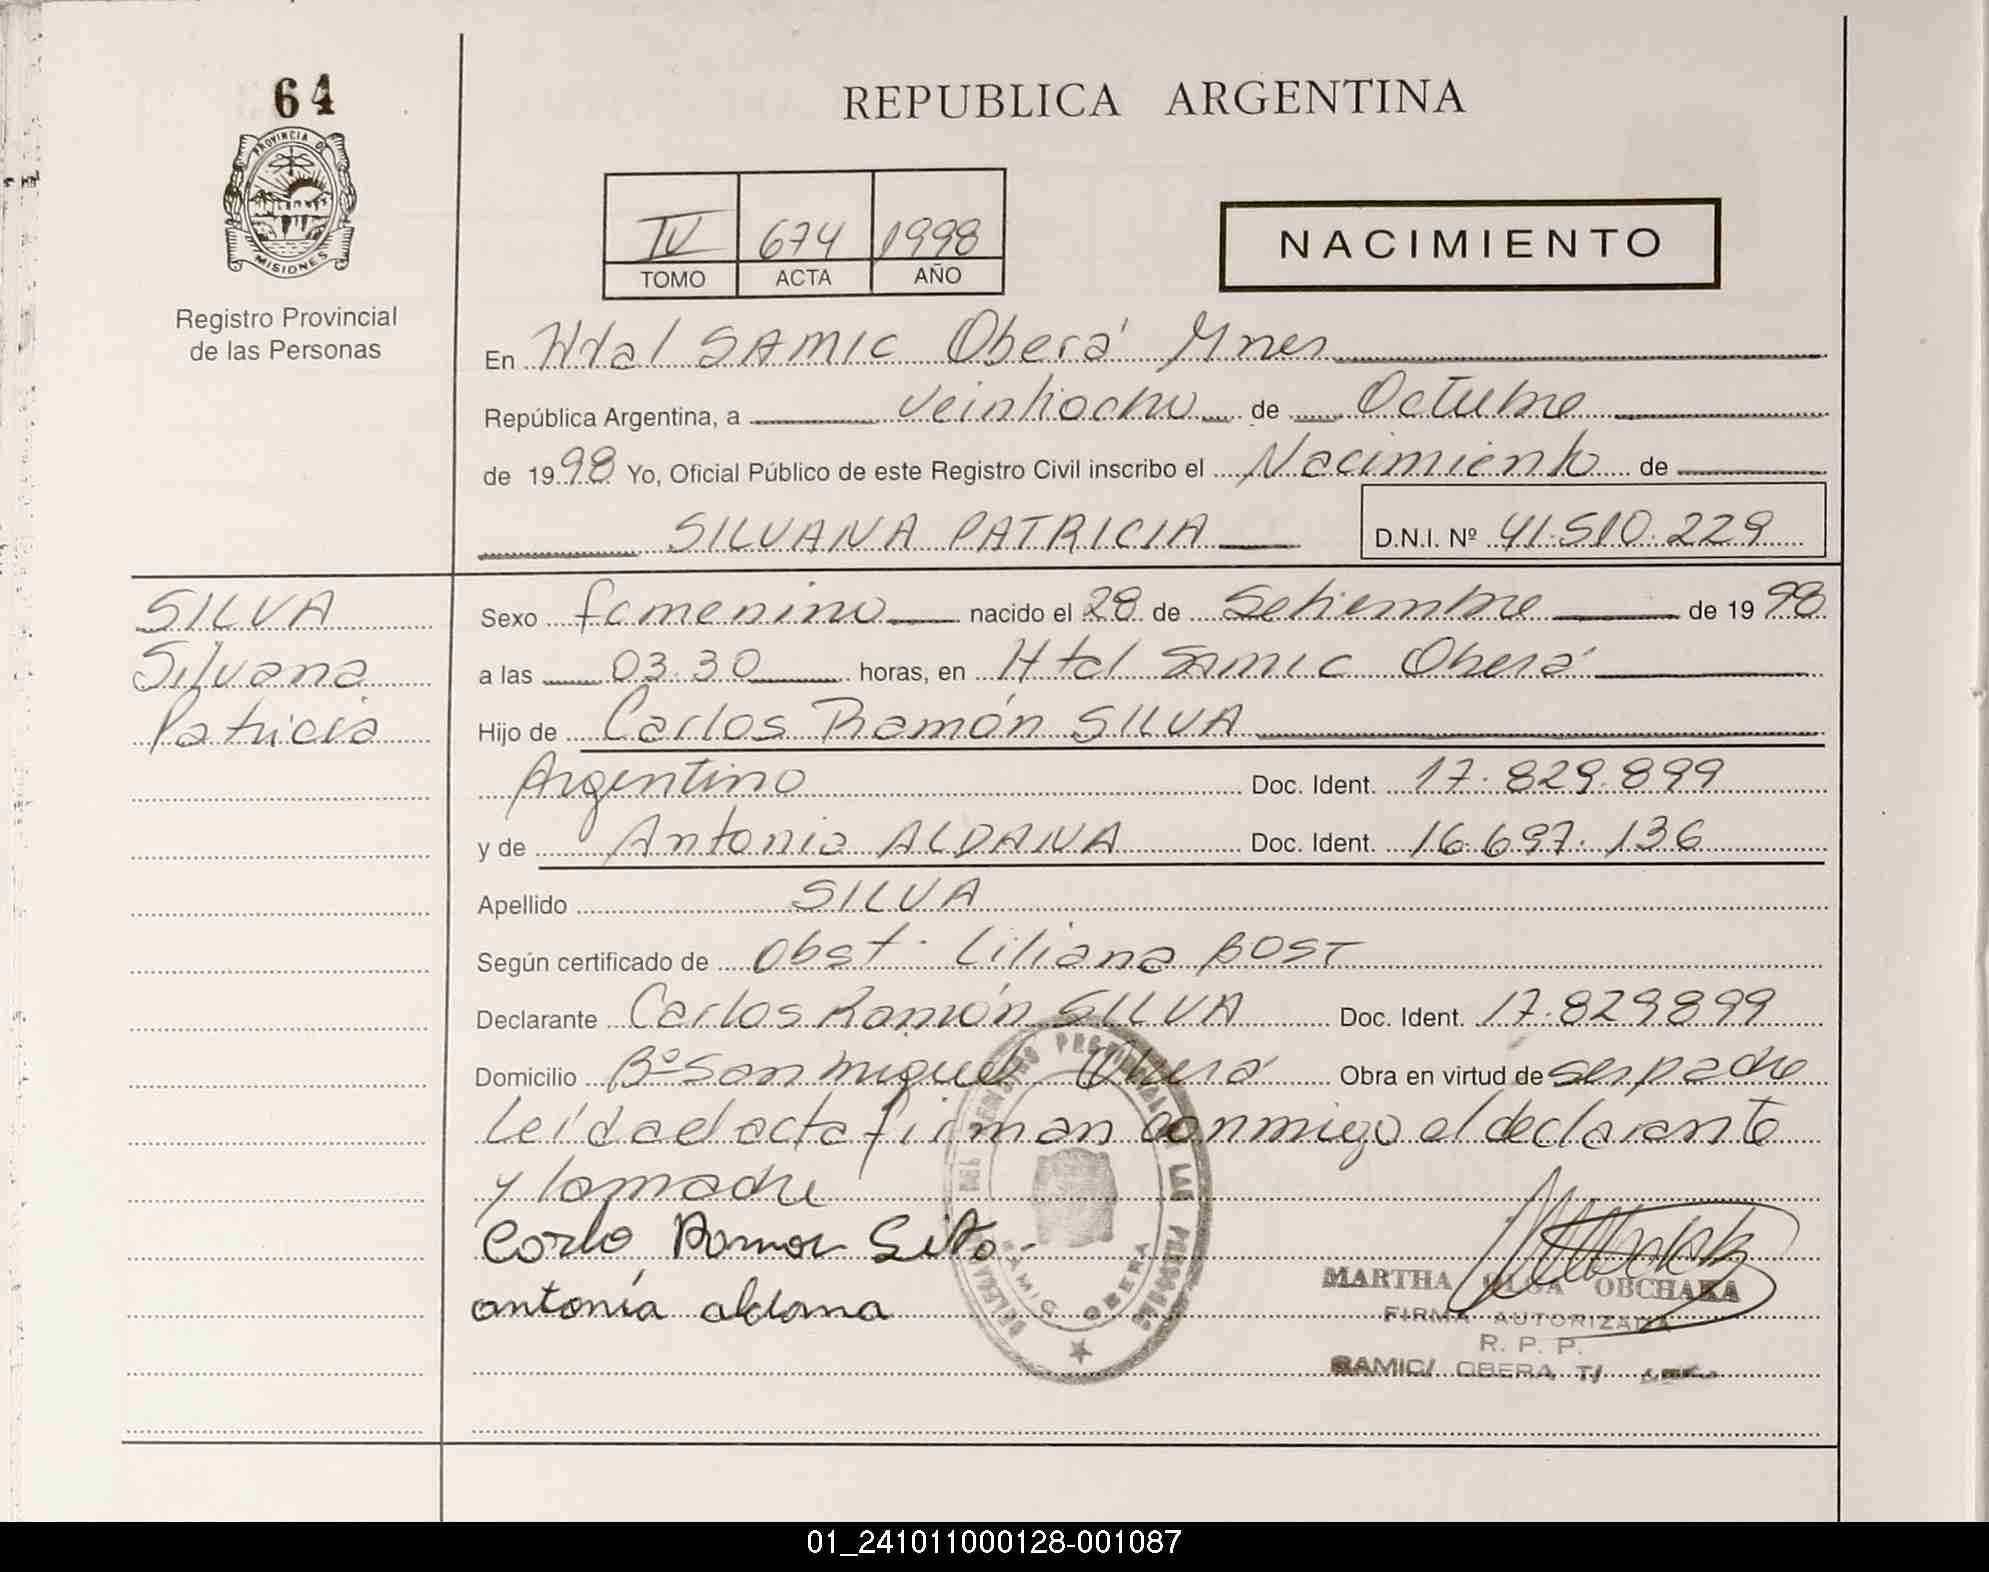 64
PROVINCIA DE
MISIONES
Registro Provincial
de las Personas
REPUBLICA ARGENTINA
IV 674 1998
TOMO ACTA AÑO
NACIMIENTO
En Htal SAMIC Oberá Mnes
República Argentina, a veintiocho de Octubre
de 1998 Yo, Oficial Público de este Registro Civil inscribo el Nacimiento de
SILVANA PATRICIA D.N.I. Nº 41.510.229
SILVA
Silvana
Patricia
Sexo femenino nacido el 28 de Setiembre de 1998
a las 03.30 horas, en Htal SAMIC Oberá
Hijo de Carlos Ramón SILVA
Argentino Doc. Ident. 17.829.899
y de Antonia ALDANA Doc. Ident. 16.697.136
Apellido SILVA
Según certificado de Obst. Liliana BOST
Declarante Carlos Ramón SILVA Doc. Ident. 17.829899
Domicilio Bº San Miguel Oberá Obra en virtud de ser padre
Leída el acta firman conmigo el declarante
y la madre
Carlo Ramon Silva
antonía aldana
DELEGA DEL REGISTRO PROVINCIAL LAS PERSONAS
SAMIC OBERA
MARTHA OLGA OBCHAKA
FIRMA AUTORIZADA
R. P. P.
SAMIC/ OBERA T/
01_241011000128-001087